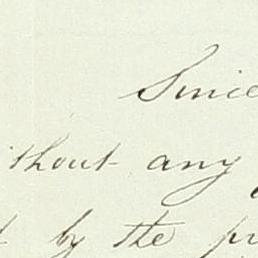 Since
ithout any
by the